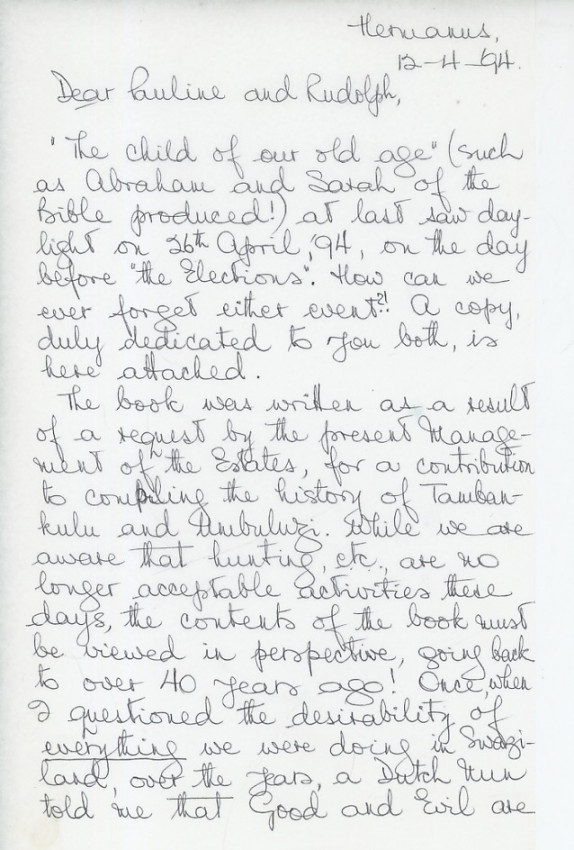 Hermanus,
12-4-94.
Dear Pauline and Rudolph,
"The child of our old age" (such
as Abraham and Sarah of the
Bible produced!) at last saw day-
light on 26th April, '94, on the day
before "the Elections". How can we
ever forget either event?! A copy,
duly dedicated to you both, is
here attached.
The book was written as a result
of a request by the present Manage-
ment of the Estates, for a contribution
to compiling the history of Tamban-
kulu and Umbuluzi. While we are
aware that hunting, etc., are no
longer acceptable activities these
days, the contents of the book must
be viewed in perspective, going back
to over 40 years ago! Once, when
I questioned the desirability of
everything we were doing in Swazi-
land, over the years, a Dutch Nun
told me that Good and Evil are